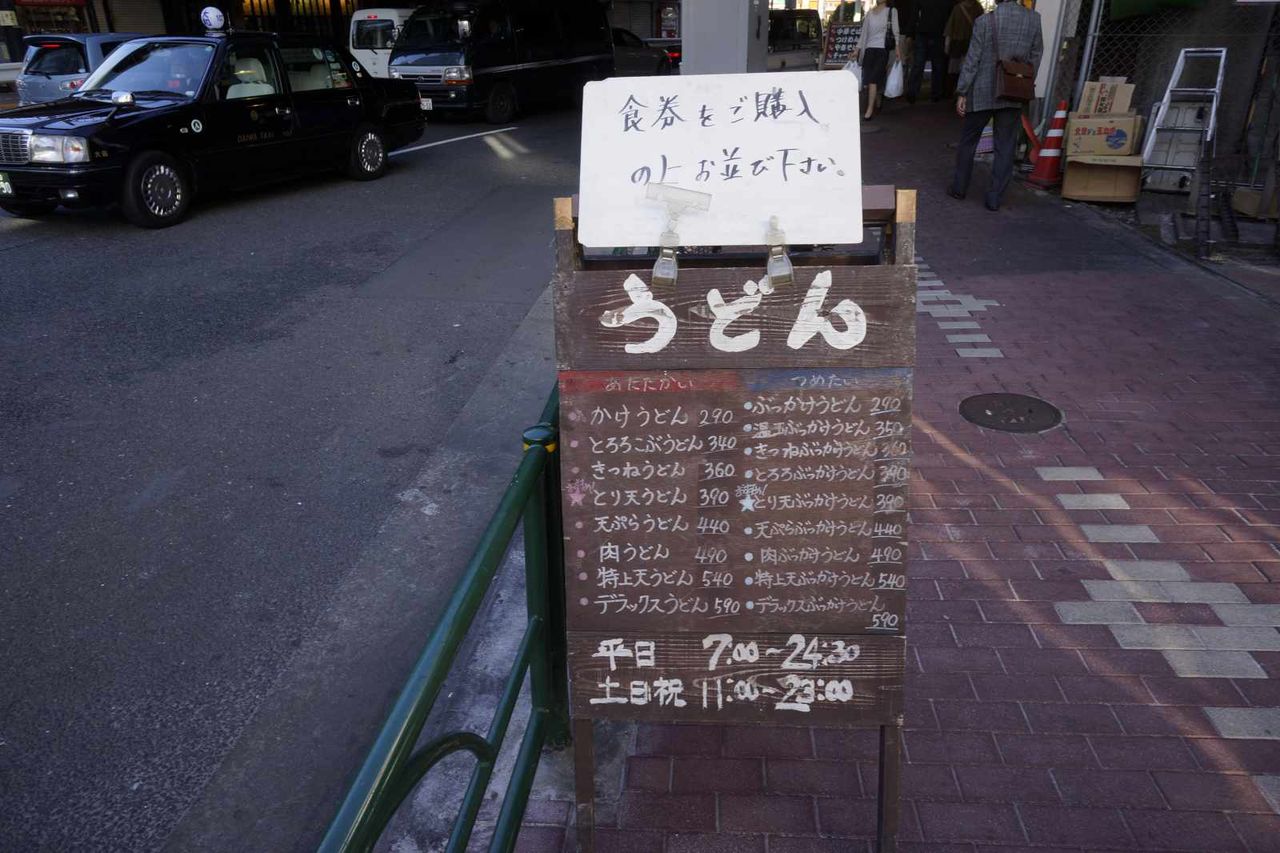 食券をご購入
の上お並び下さい。
うどん
あたたかい
かけうどん 290
とろろこぶうどん 340
きつねうどん 360
とり天うどん 390
天ぷらうどん 440
肉うどん 490
特上天うどん 540
デラックスうどん 590
つめたい
ぶっかけうどん 290
温玉ぶっかけうどん 350
きつねぶっかけうどん 360
とろろぶっかけうどん 390
とり天ぶっかけうどん 390
天ぷらぶっかけうどん 440
肉ぶっかけうどん 490
特上天ぶっかけうどん 540
デラックスぶっかけうどん
590
平日 7:00~24:30
土日祝 11:00~23:00
DAIWA TAXI